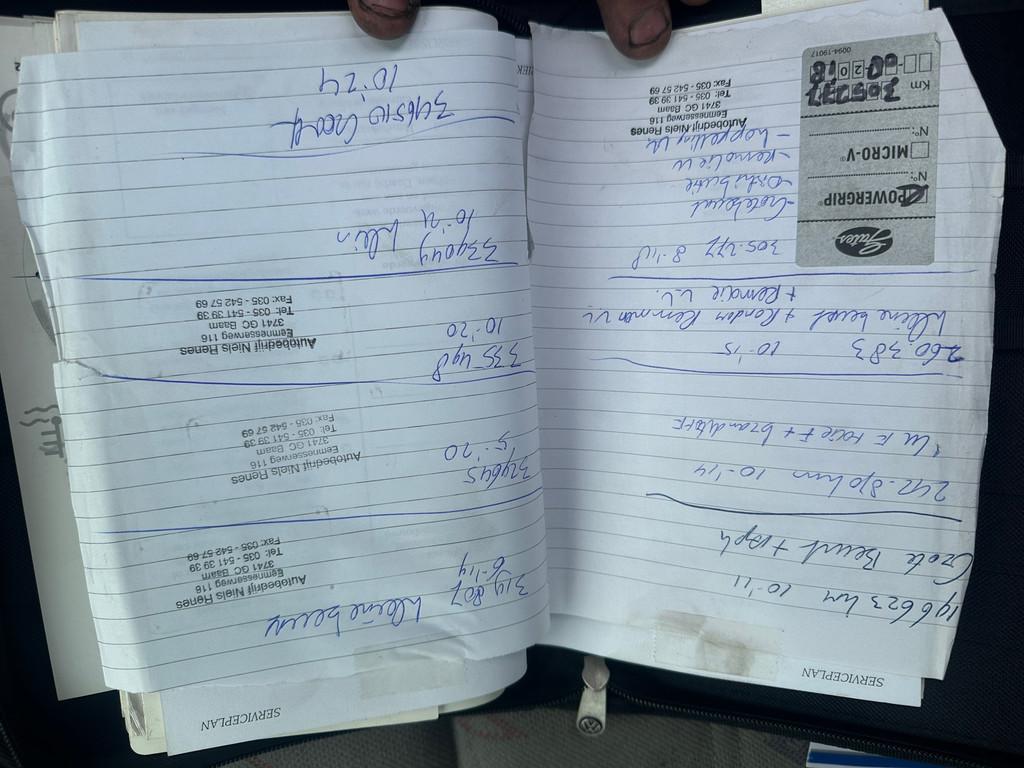 SERVICEPLAN
196623 km 10-'11
Grote Beurt +
242.810 km 10-'14
+
260.383 10-'15
kleine beurt + Rondom Remmen v.v.
+ Remolie v.v.
305.277 8-'18
-Grotebeurt
-Distributie
-Remolie vv
-koppeling vv
Autobedrijf Niels Renes
Eemnesserweg 116
3741 GC Baarn
Tel: 035 - 541 39 39
Fax: 035 - 542 57 69
Gates
POWERGRIP®
N°:
MICRO-V®
N°:
Km
305277
08 2018
0094-19017
SERVICEPLAN
314 807 kleine beurt
6-'19
Autobedrijf Niels Renes
Eemnesserweg 116
3741 GC Baarn
Tel: 035 - 541 39 39
Fax: 035 - 542 57 69
324645
5-'20
Autobedrijf Niels Renes
Eemnesserweg 116
3741 GC Baarn
Tel: 035 - 541 39 39
Fax: 035 - 542 57 69
335498
10-'20
Autobedrijf Niels Renes
Eemnesserweg 116
3741 GC Baarn
Tel: 035 - 541 39 39
Fax: 035 - 542 57 69
339049 klein
10-'21
346510 Groot
10-'24